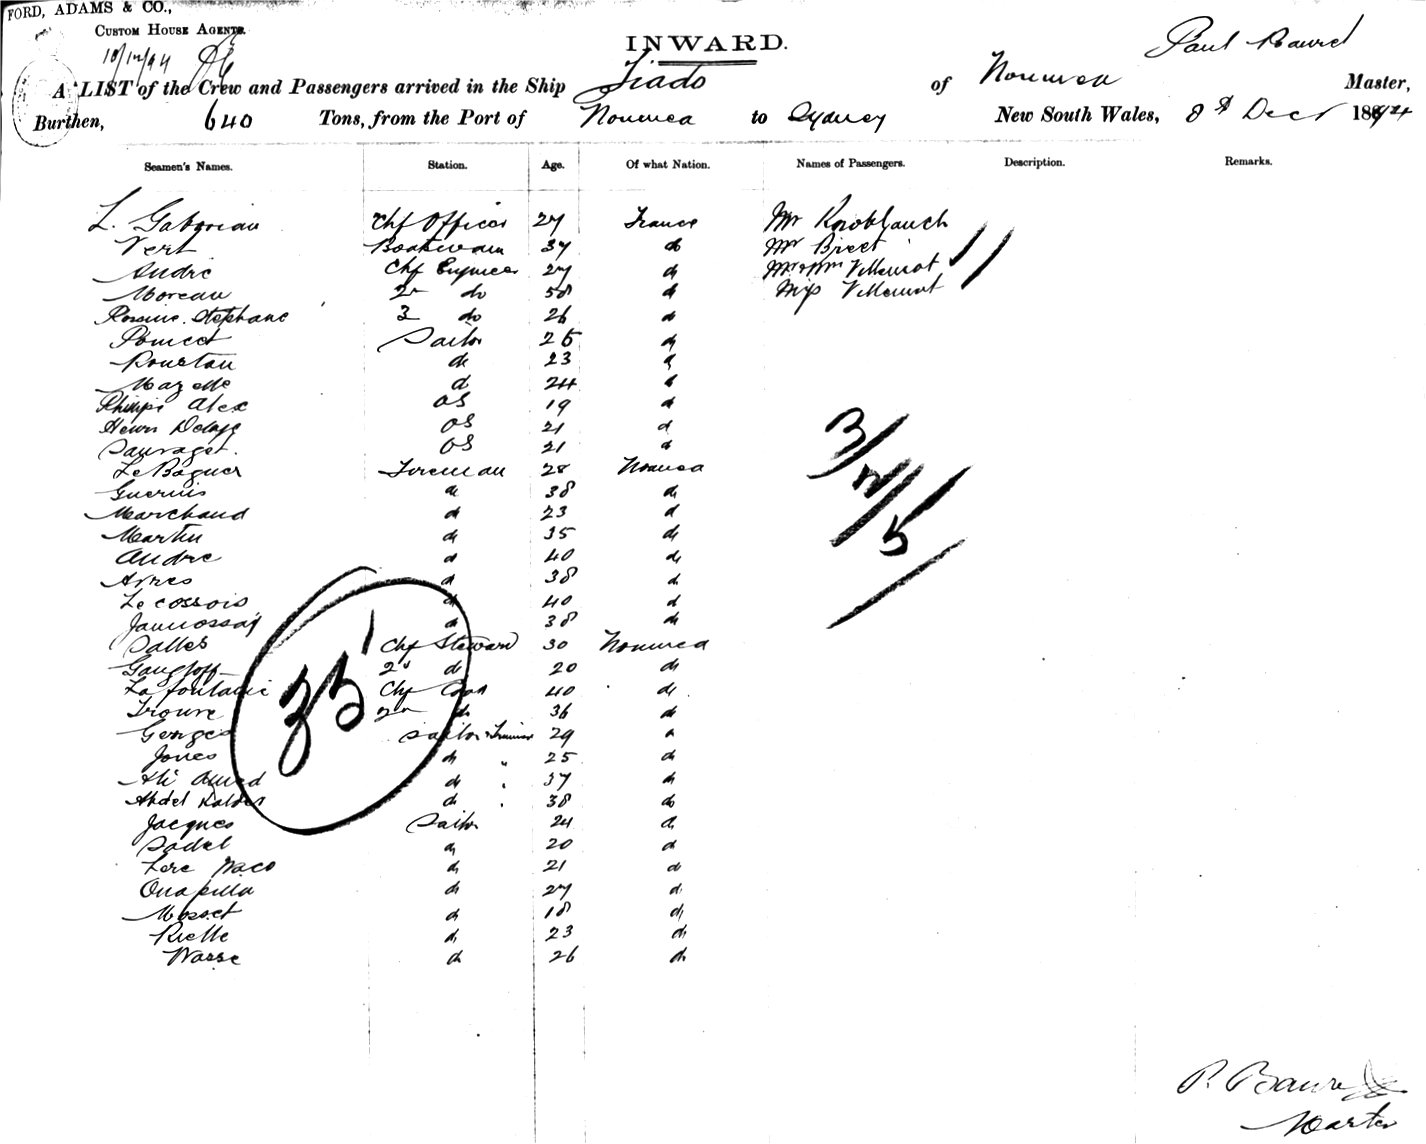 FORD, ADAMS & CO.,
CUSTOM HOUSE AGENTS.
10/12/94
INWARD.
Paul Bauret
A LIST of the Crew and Passengers arrived in the Ship Tiado of Noumea Master,
Burthen, 640 Tons, from the Port of Noumea to Sydney New South Wales, 8th Decr 1894
Seamen's Names. Station. Age. Of what Nation. Names of Passengers. Description. Remarks.
L. Gaboriau Chf Officer 27 France Mr Knoblauch
Vert Boatswain 37 do Mr Brect
André Chf Engineer 27 do Mr & Mm Villemot
Moreau 2n do 58 do Miss Villemot
Stephane 3 do 26 do
Poincet Sailor 25 do
Roustan do 23 do
Mazelle do 24 do
Philipi Alex OS 19 do
Henri Delage OS 21 do
Sauvaget. OS 21 do
Le Baguer Fireman 28 Noumea
Guerins do 38 do
Marchand do 23 do
Martin do 35 do
André do 40 do
Aynes do 38 do
Le cossois do 40 do
Jannossay do 38 do
Salles Chf Steward 30 Noumea
Gangloff 2d do 20 do
Lafontaine Chf Cook 40 do
Trouve 2n do 36 do
Georges Sailor Trimmer 29 do
Jones do " 25 do
Ali Amed do " 37 do
Abdel Kalder do " 38 do
Jacques Sailor 24 do
Sadel do 20 do
Lere Waco do 21 do
Ouapilla do 27 do
Mosset do 18 do
Rielle do 23 do
Wasse do 26 do
3/2/5
35
P. Bauret
Master